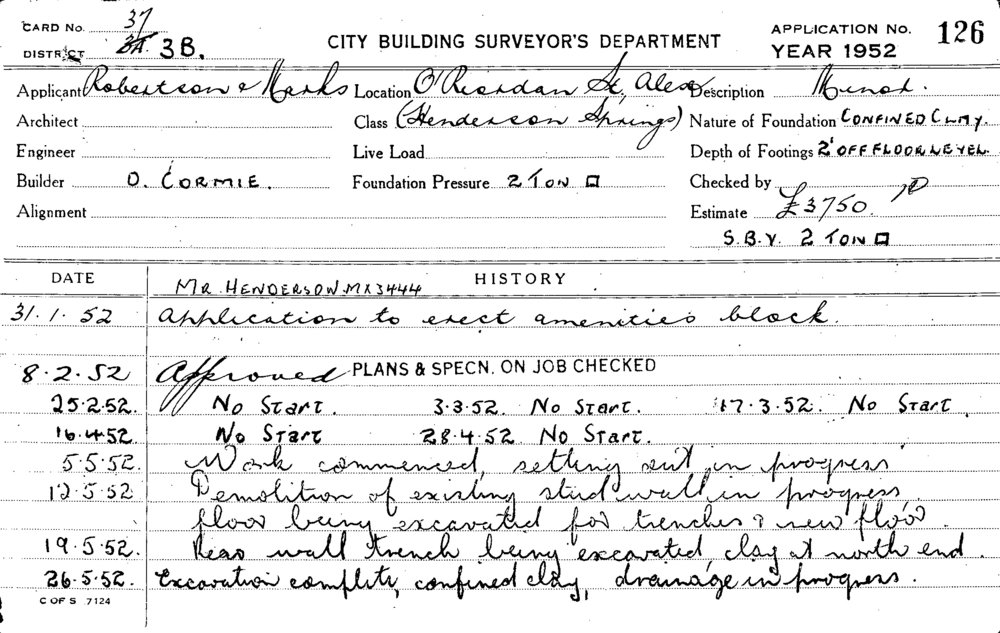 CARD No. 37
DISTRICT 3A. 3B.
CITY BUILDING SURVEYOR'S DEPARTMENT
APPLICATION No. 126
YEAR 1952
Applicant Robertson & Marks Location O'Riordan St, Alex Description Minor.
Architect Class (Henderson Springs) Nature of Foundation CONFINED CLAY.
Engineer Live Load Depth of Footings 2' OFF FLOOR LEVEL.
Builder O. CORMIE. Foundation Pressure 2 TON □ Checked by
Alignment Estimate £3750.
S.B.V. 2 TON □
DATE HISTORY
MR. HENDERSON. MX3444
31.1.52 Application to erect amenities block.
8.2.52 Approved PLANS & SPECN. ON JOB CHECKED
25.2.52. No Start. 3.3.52. No Start. 17.3.52. No Start.
16.4.52 No Start 28.4.52 No Start.
5.5.52. Work commenced, setting out in progress
12.5.52 Demolition of existing stud wall in progress.
floor being excavated for trenches & new floor.
19.5.52. Rear wall trench being excavated clay at north end.
26.5.52. Excavation complete, confined clay, drainage in progress.
C OF S 7124